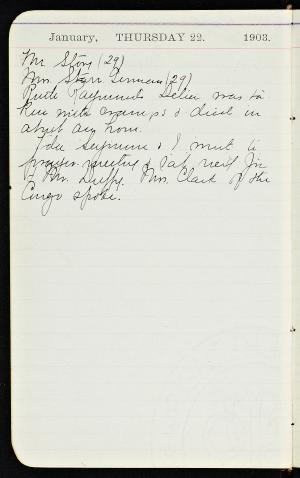 January, THURSDAY 22. 1903.
Mr Story (29)
Mrs. Starr (29)
Ruth Raymond's sister was
with cramps & died in
about an hour.
Ida & I went to
prayer meeting & sat next
Mr. Duffy. Mrs. Clark of the
Congo spoke.